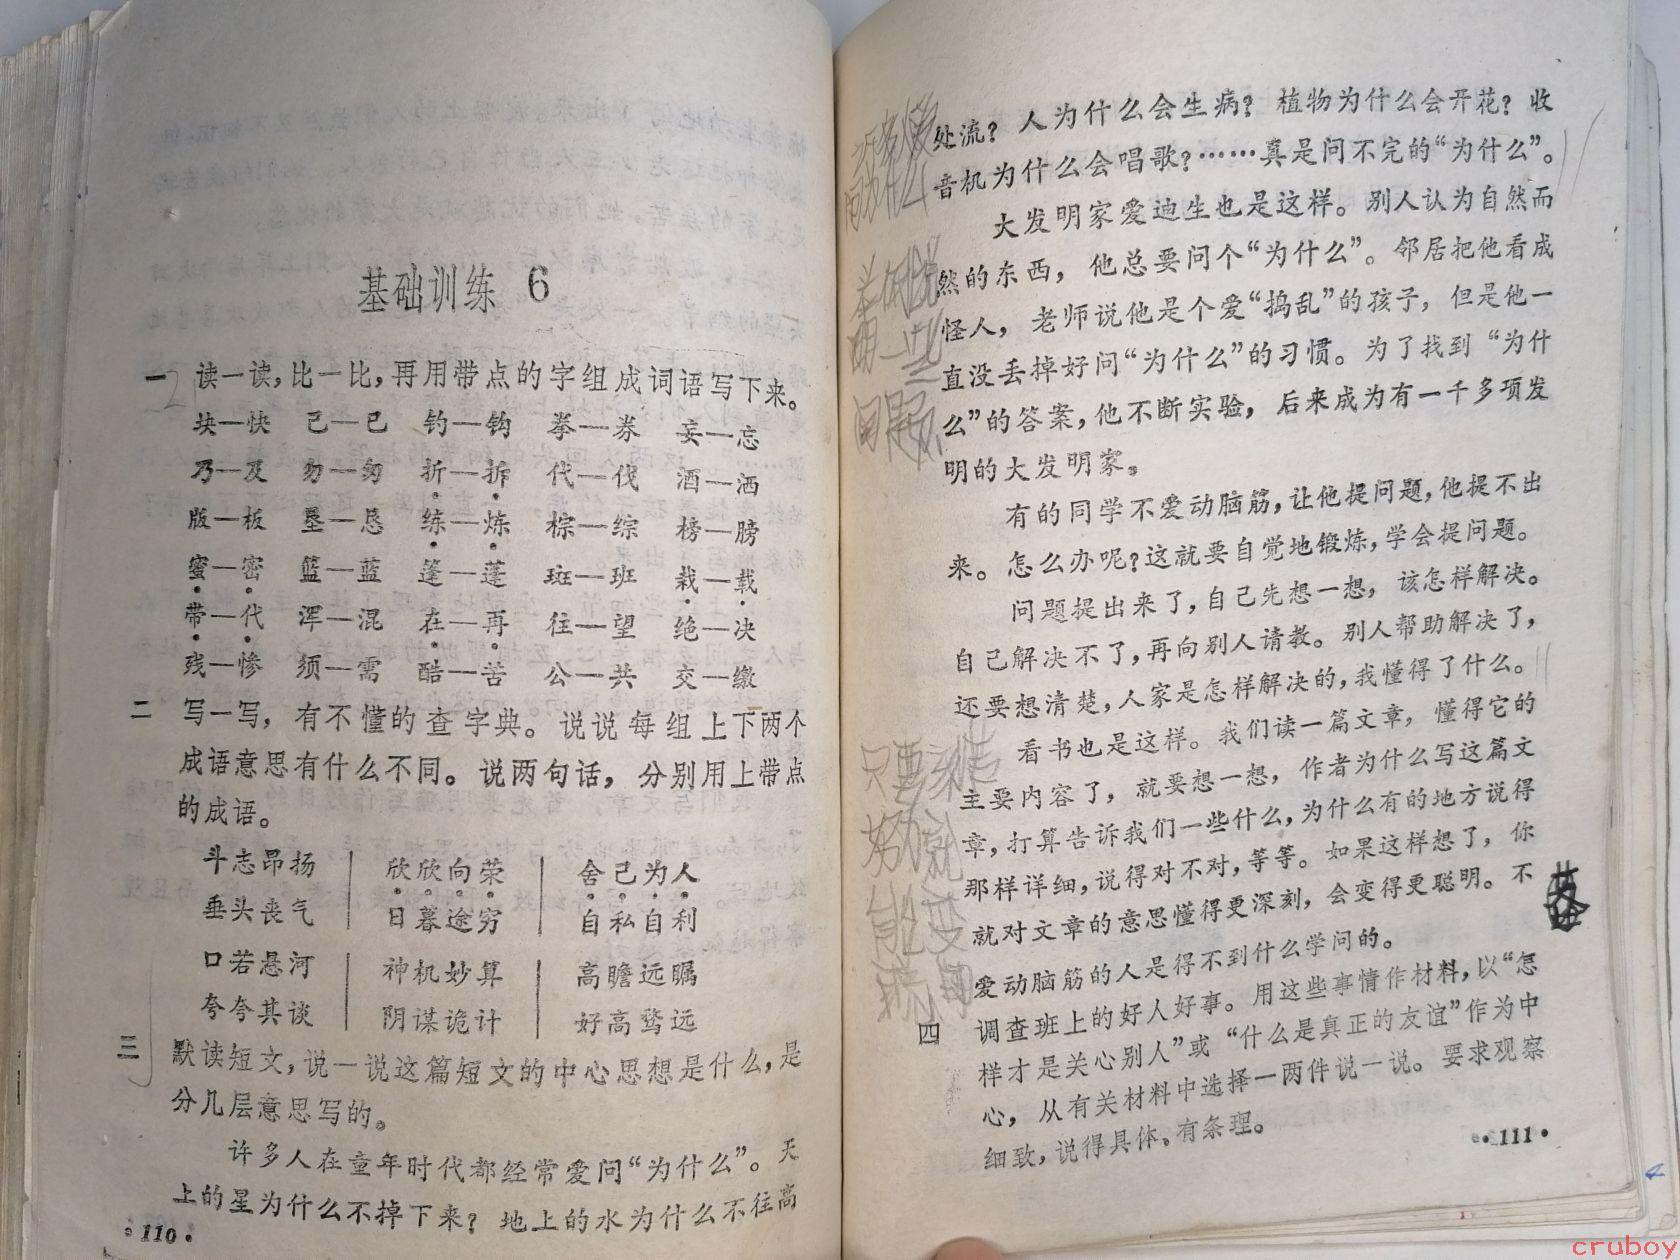 基础训练 6
一 读一读，比一比，再用带点的字组成词语写下来。
块—快 己—已 钓—钩 拳—券 妄—忘
乃—及 勿—匆 折—拆 代—伐 酒—洒
版—板 垦—恳 练—炼 棕—综 榜—膀
蜜—密 篮—蓝 篷—蓬 斑—班 栽—载
带—代 浑—混 在—再 往—望 绝—决
残—惨 须—需 酷—苦 公—共 交—缴
二 写一写，有不懂的查字典。说说每组上下两个
成语意思有什么不同。说两句话，分别用上带点
的成语。
斗志昂扬 欣欣向荣 舍己为人
垂头丧气 日暮途穷 自私自利
口若悬河 神机妙算 高瞻远瞩
夸夸其谈 阴谋诡计 好高骛远
三 默读短文，说一说这篇短文的中心思想是什么，是
分几层意思写的。
许多人在童年时代都经常爱问“为什么”。天
上的星为什么不掉下来？地上的水为什么不往高
·110·
处流？人为什么会生病？植物为什么会开花？收
音机为什么会唱歌？……真是问不完的“为什么”。
大发明家爱迪生也是这样。别人认为自然而
然的东西，他总要问个“为什么”。邻居把他看成
怪人，老师说他是个爱“捣乱”的孩子，但是他一
直没丢掉好问“为什么”的习惯。为了找到“为什
么”的答案，他不断实验，后来成为有一千多项发
明的大发明家。
有的同学不爱动脑筋，让他提问题，他提不出
来。怎么办呢？这就要自觉地锻炼，学会提问题。
问题提出来了，自己先想一想，该怎样解决。
自己解决不了，再向别人请教。别人帮助解决了，
还要想清楚，人家是怎样解决的，我懂得了什么。
看书也是这样。我们读一篇文章，懂得它的
主要内容了，就要想一想，作者为什么写这篇文
章，打算告诉我们一些什么，为什么有的地方说得
那样详细，说得对不对，等等。如果这样想了，你
就对文章的意思懂得更深刻，会变得更聪明。不
爱动脑筋的人是得不到什么学问的。
四 调查班上的好人好事。用这些事情作材料，以“怎
样才是关心别人”或“什么是真正的友谊”作为中
心，从有关材料中选择一两件说一说。要求观察
细致，说得具体。有条理。
·111·
只要刻苦
努力就
能变
聪明
cruboy